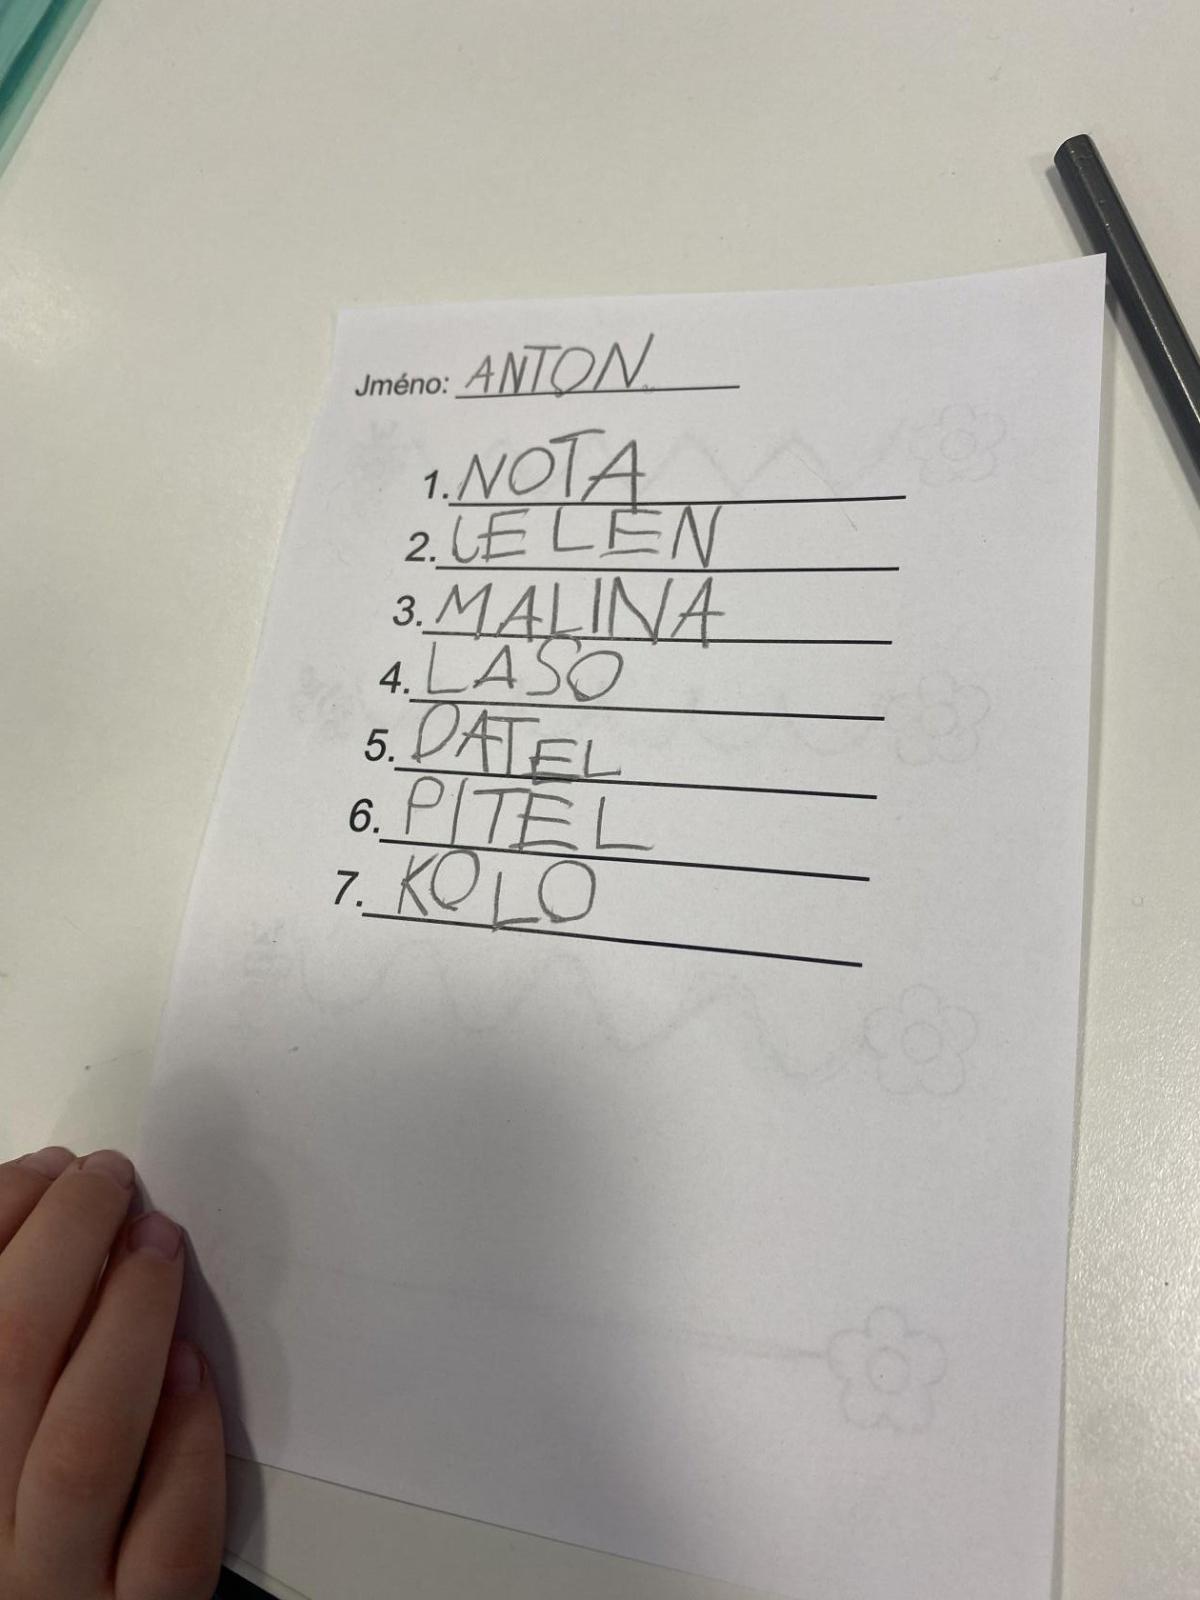 Jméno: ANTON
1. NOTA
2. JELEN
3. MALINA
4. LASO
5. DATEL
6. PITEL
7. KOLO